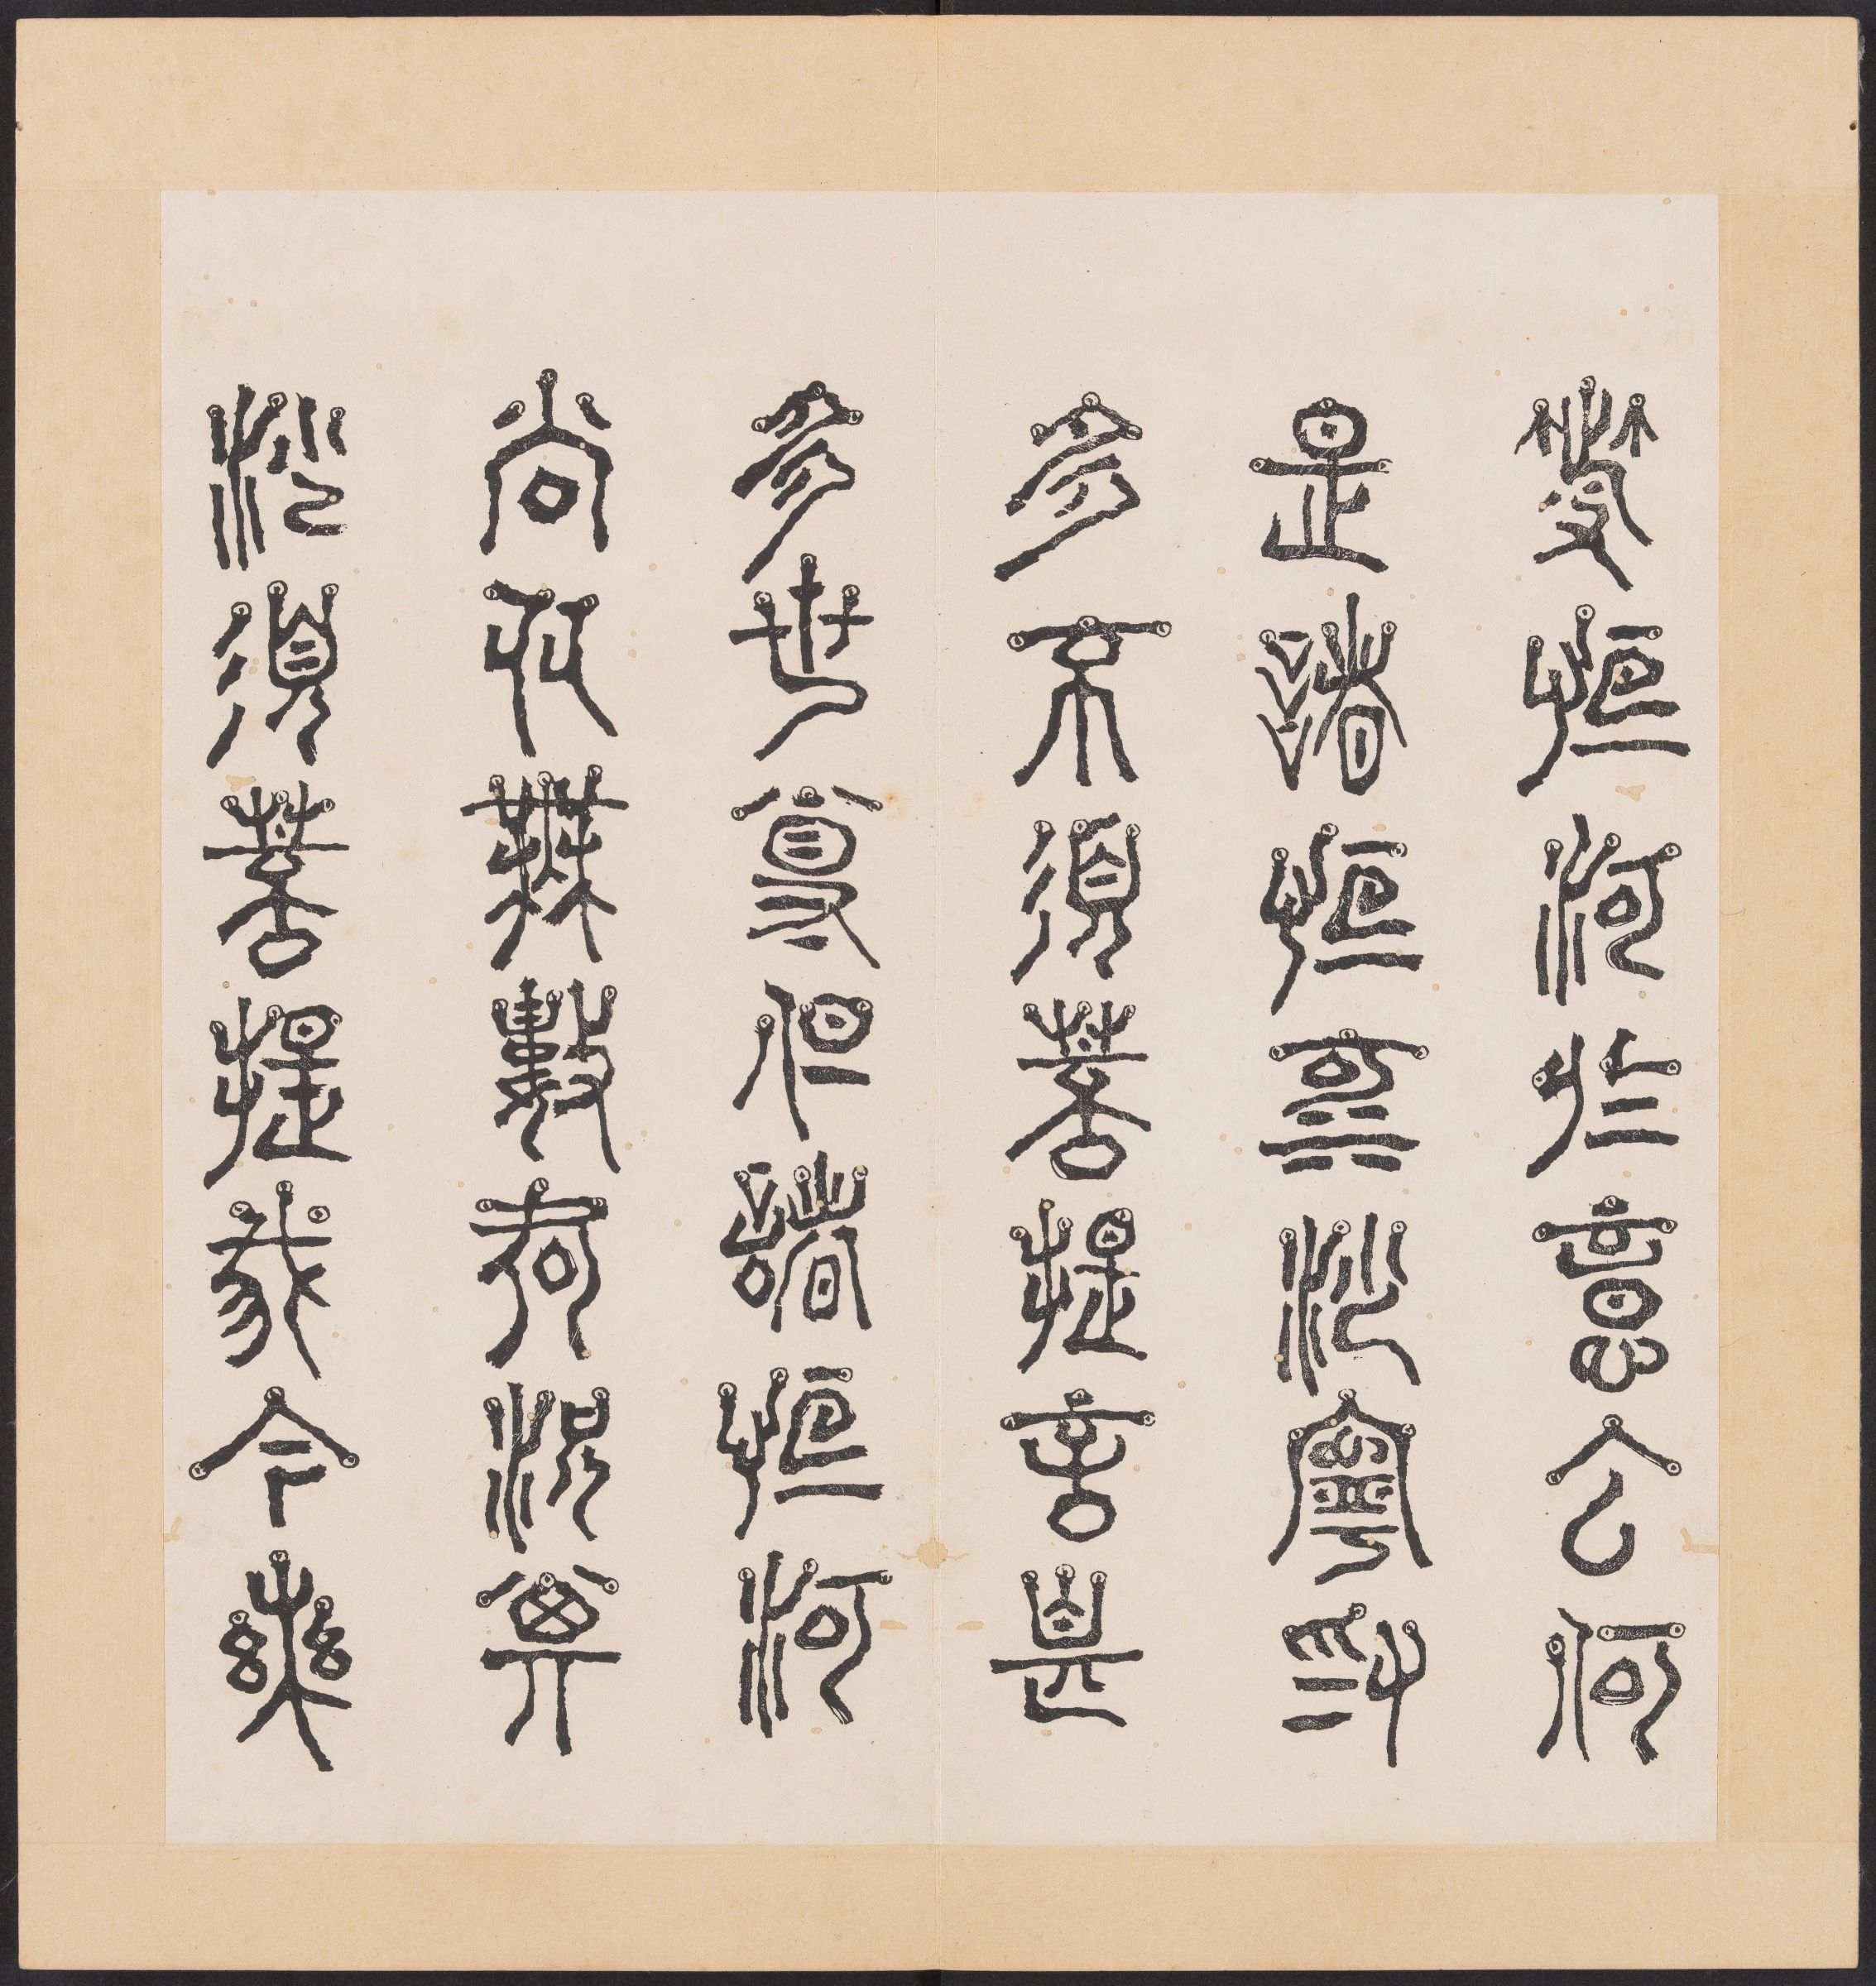 等恒河於意云何
是諸恒河沙寧為
多不須菩提言甚
多世尊但諸恒河
尚多無數何況其
沙須菩提我今實